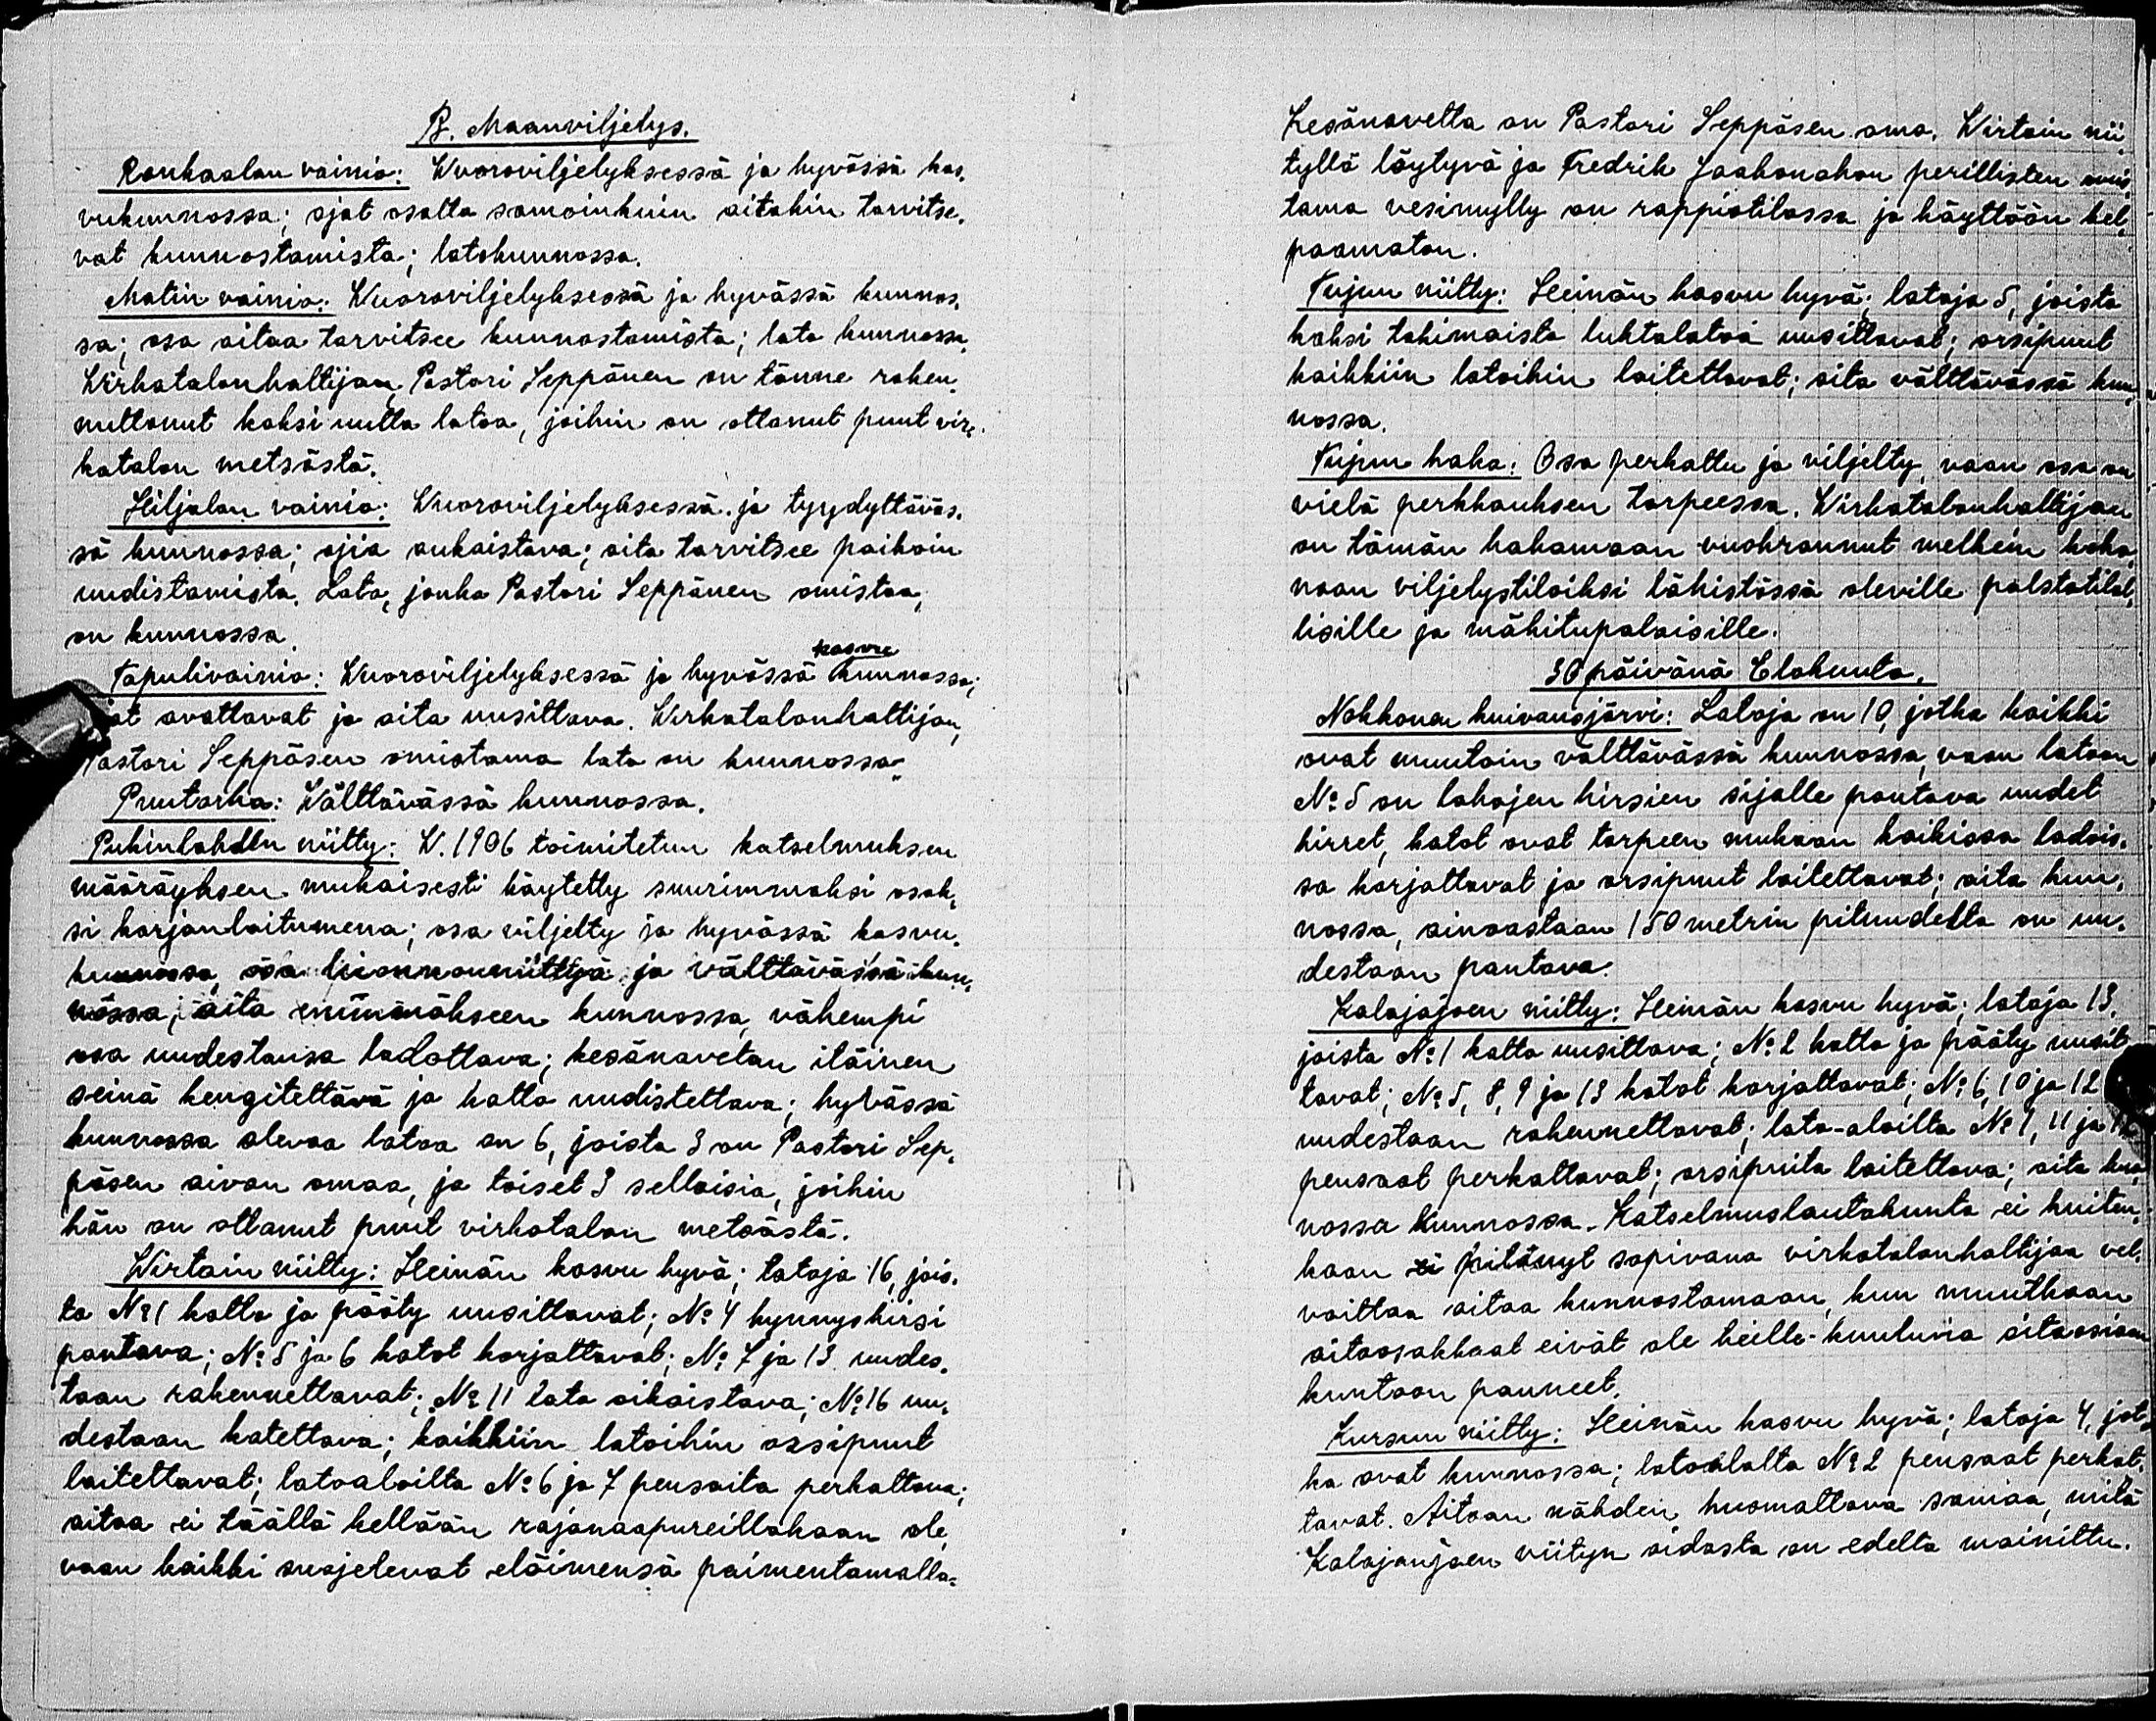 B. Maanviljelys.
Roukaalan vainio: Wuoroviljelyksessä ja hyvässä kas-
vukunnossa; ojat osalta samoinkuin aitakin tarvitse-
vat kunnostamista; lato kunnossa.
Matin vainio: Wuoroviljelyksessä ja hyvässä kunnos-
sa; osa aitaa tarvitsee kunnostamista; lato kunnossa.
Wirkatalonhaltijan, Pastori Seppänen on tänne raken-
nuttanut kaksi uutta latoa, joihin on ottanut puut vir-
katalon metsästä.
Hiljalan vainio: Wuoroviljelyksessä ja tyydyttäväs-
sä kunnossa; ojia aukaistava; aita tarvitsee paikoin
uudistamista. Lato, jonka Pastori Seppänen omistaa,
on kunnossa.
kasvu
Tapulivainio: Wuoroviljelyksessä ja hyvässä kunnossa;
jat avattavat ja aita uusittava. Wirkatalonhaltijan,
Pastori Seppäsen omistama lato on kunnossa.
Puutarha: Wälttävässä kunnossa.
Pukinlahden niitty: W. 1906 toimitetun katselmuksen
määräyksen mukaisesti käytetty suurimmaksi osak-
si karjanlaitumena; osa viljelty ja hyvässä kasvu-
kunnossa, osa luonnonniittyä ja välttävässä kun-
nossa; aita enimmäkseen kunnossa, vähempi
osa uudestansa ladottava; kesänavetan itäinen
seinä kengitettävä ja katto uudistettava; hyvässä
kunnossa olevaa latoa on 6, joista 3 on Pastori Sep-
päsen aivan omaa, ja toiset 3 sellaisia, joihin
hän on ottanut puut virkatalon metsästä.
Wirtain niitty: Heinän kasvu hyvä; latoja 16, jois-
ta No 1 katto ja pääty uusittavat; No 4 kynnyshirsi
pantava; No 5 ja 6 katot korjattavat; No 7 ja 13 uudes-
taan rakennettavat; No 11 lato oikaistava; No 16 uu-
destaan katettava; kaikkiin latoihin orsipuut
laitettavat; latoaloilta No 6 ja 7 pensaita perkattava;
aitaa ei täällä kellään rajanaapureillakaan ole,
vaan kaikki suojelevat eläimensä paimentamalla.
Kesänavetta on Pastori Seppäsen oma. Wirtain nii-
tyllä löytyvä ja Fredrik Jaakonahon perillisten omis-
tama vesimylly on rappiotilassa ja käyttöön kel-
paamaton.
Tujun niitty: Heinän kasvu hyvä; latoja 5, joista
kaksi takimaista luhtalatoa uusittavat; orsipuut
kaikkiin latoihin laitettavat; aita välttävässä kun-
nossa.
Tujun haka: Osa perkattu ja viljelty, vaan osa on
vielä perkkauksen tarpeessa. Wirkatalonhaltijan
on tämän hakamaan vuokrannut melkein koko-
naan viljelystiloiksi lähistössä oleville palstatilal-
lisille ja mäkitupalaisille.
30 päivänä Elokuuta.
Nokkonen kuivausjärvi: Latoja on 10, jotka kaikki
ovat muutoin välttävässä kunnossa, vaan latoon
No 5 on lahojen hirsien sijalle pantava uudet
hirret, katot ovat tarpeen mukaan kaikissa ladois-
sa korjattavat ja orsipuut laitettavat; aita kun-
nossa, ainoastaan 150 metrin pituudella on uu-
destaan pantava.
Kalajajoen niitty: Heinän kasvu hyvä; latoja 13,
joista No 1 katto uusittava; No 2 katto ja pääty uusit-
tavat; No 5, 8, 9 ja 13 katot korjattavat; No 6, 10 ja 12
uudestaan rakennettavat; lato-aloilta No 1, 11 ja
pensaat perkattavat; orsipuita laitettava; aita kun-
nossa kunnossa. Katselmuslautakunta ei kuiten-
kaan ei pitänyt sopivana virkatalonhaltijaa vel-
voittaa aitaa kunnostamaan, kun muutkaan
aitaosakkaat eivät ole heille kuuluvia aitaosiaan
kuntoon panneet.
Kursun niitty: Heinän kasvu hyvä; latoja 4, jot-
ka ovat kunnossa; latoalalta No 2 pensaat perkat-
tavat. Aitaan nähden huomattava samaa, mitä
Kalajanjoen niityn aidasta on edellä mainittu.